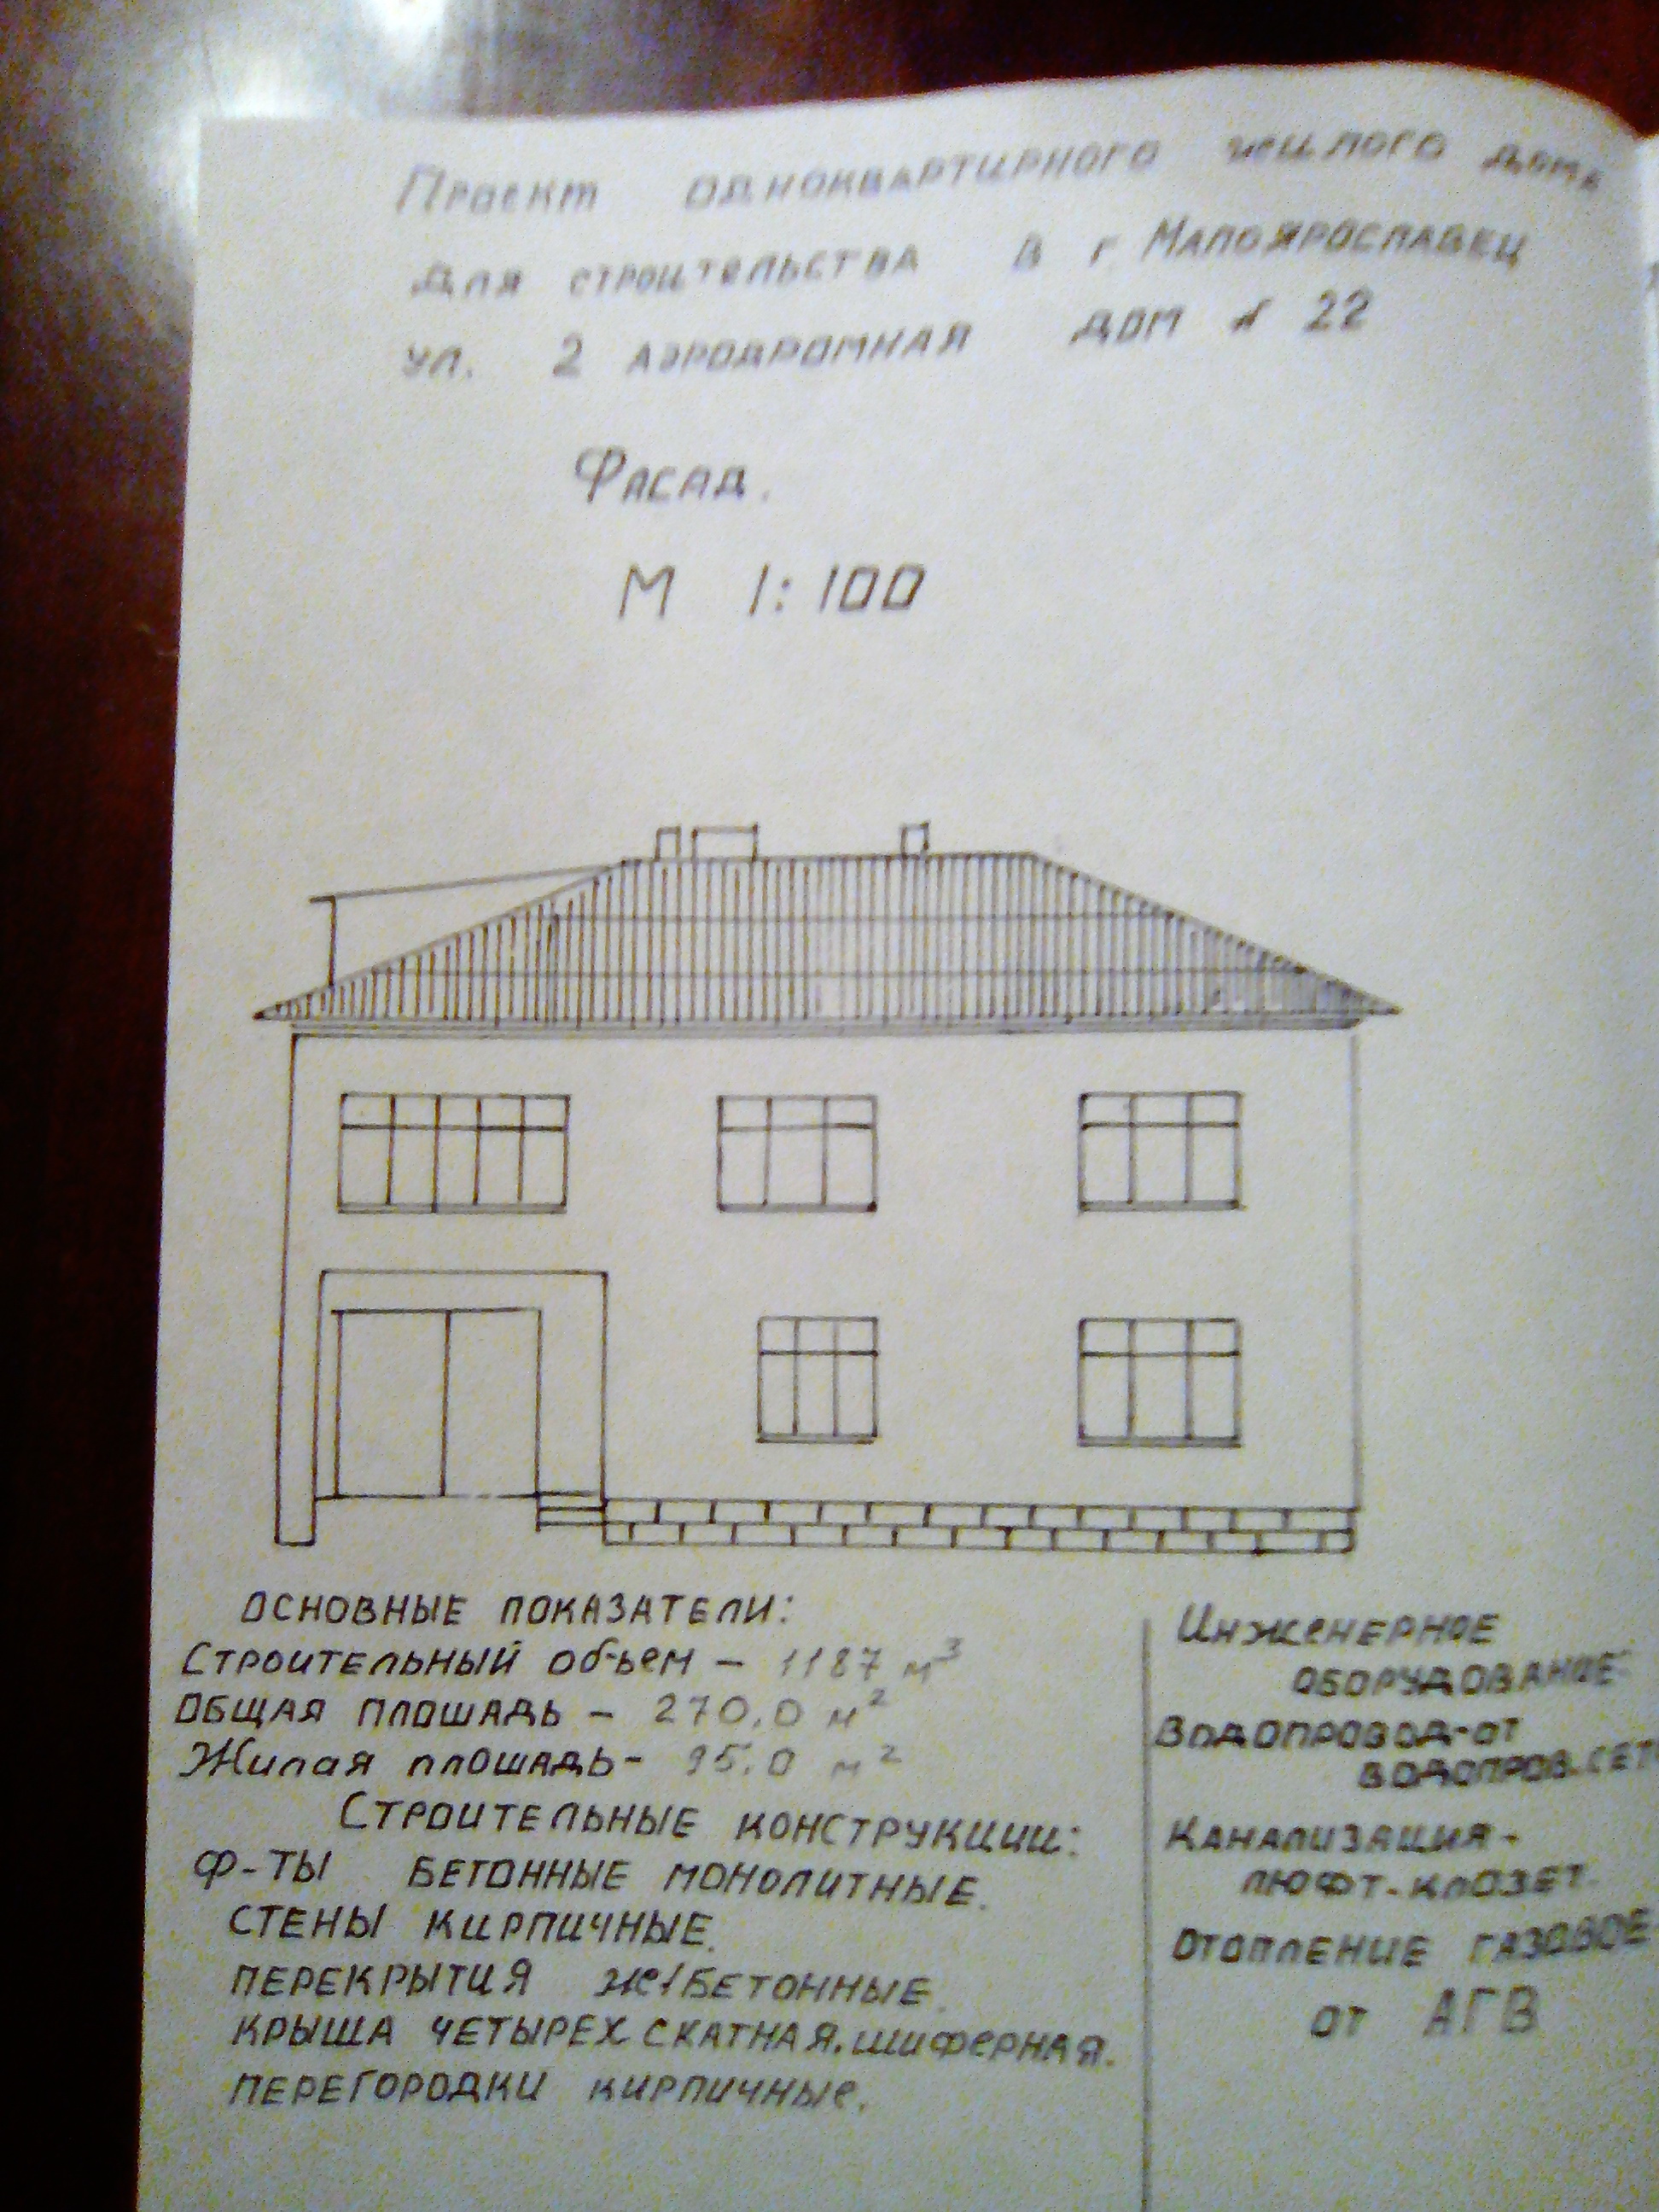 Проект одноквартирного жилого дома
для строительства в г. Малоярославец
ул. 2 аэродромная дом № 22
Фасад.
М 1:100
Основные показатели:
Строительный объем – 1187 м³
Общая площадь – 270,0 м²
Жилая площадь – 95,0 м²
Строительные конструкции:
Ф-ты бетонные монолитные.
Стены кирпичные.
Перекрытия же/бетонные.
Крыша четырехскатная. шиферная.
Перегородки кирпичные.
Инженерное
оборудование:
Водопровод-от
водопров. сет
Канализация-
люфт-клозет.
Отопление газовое
от АГВ